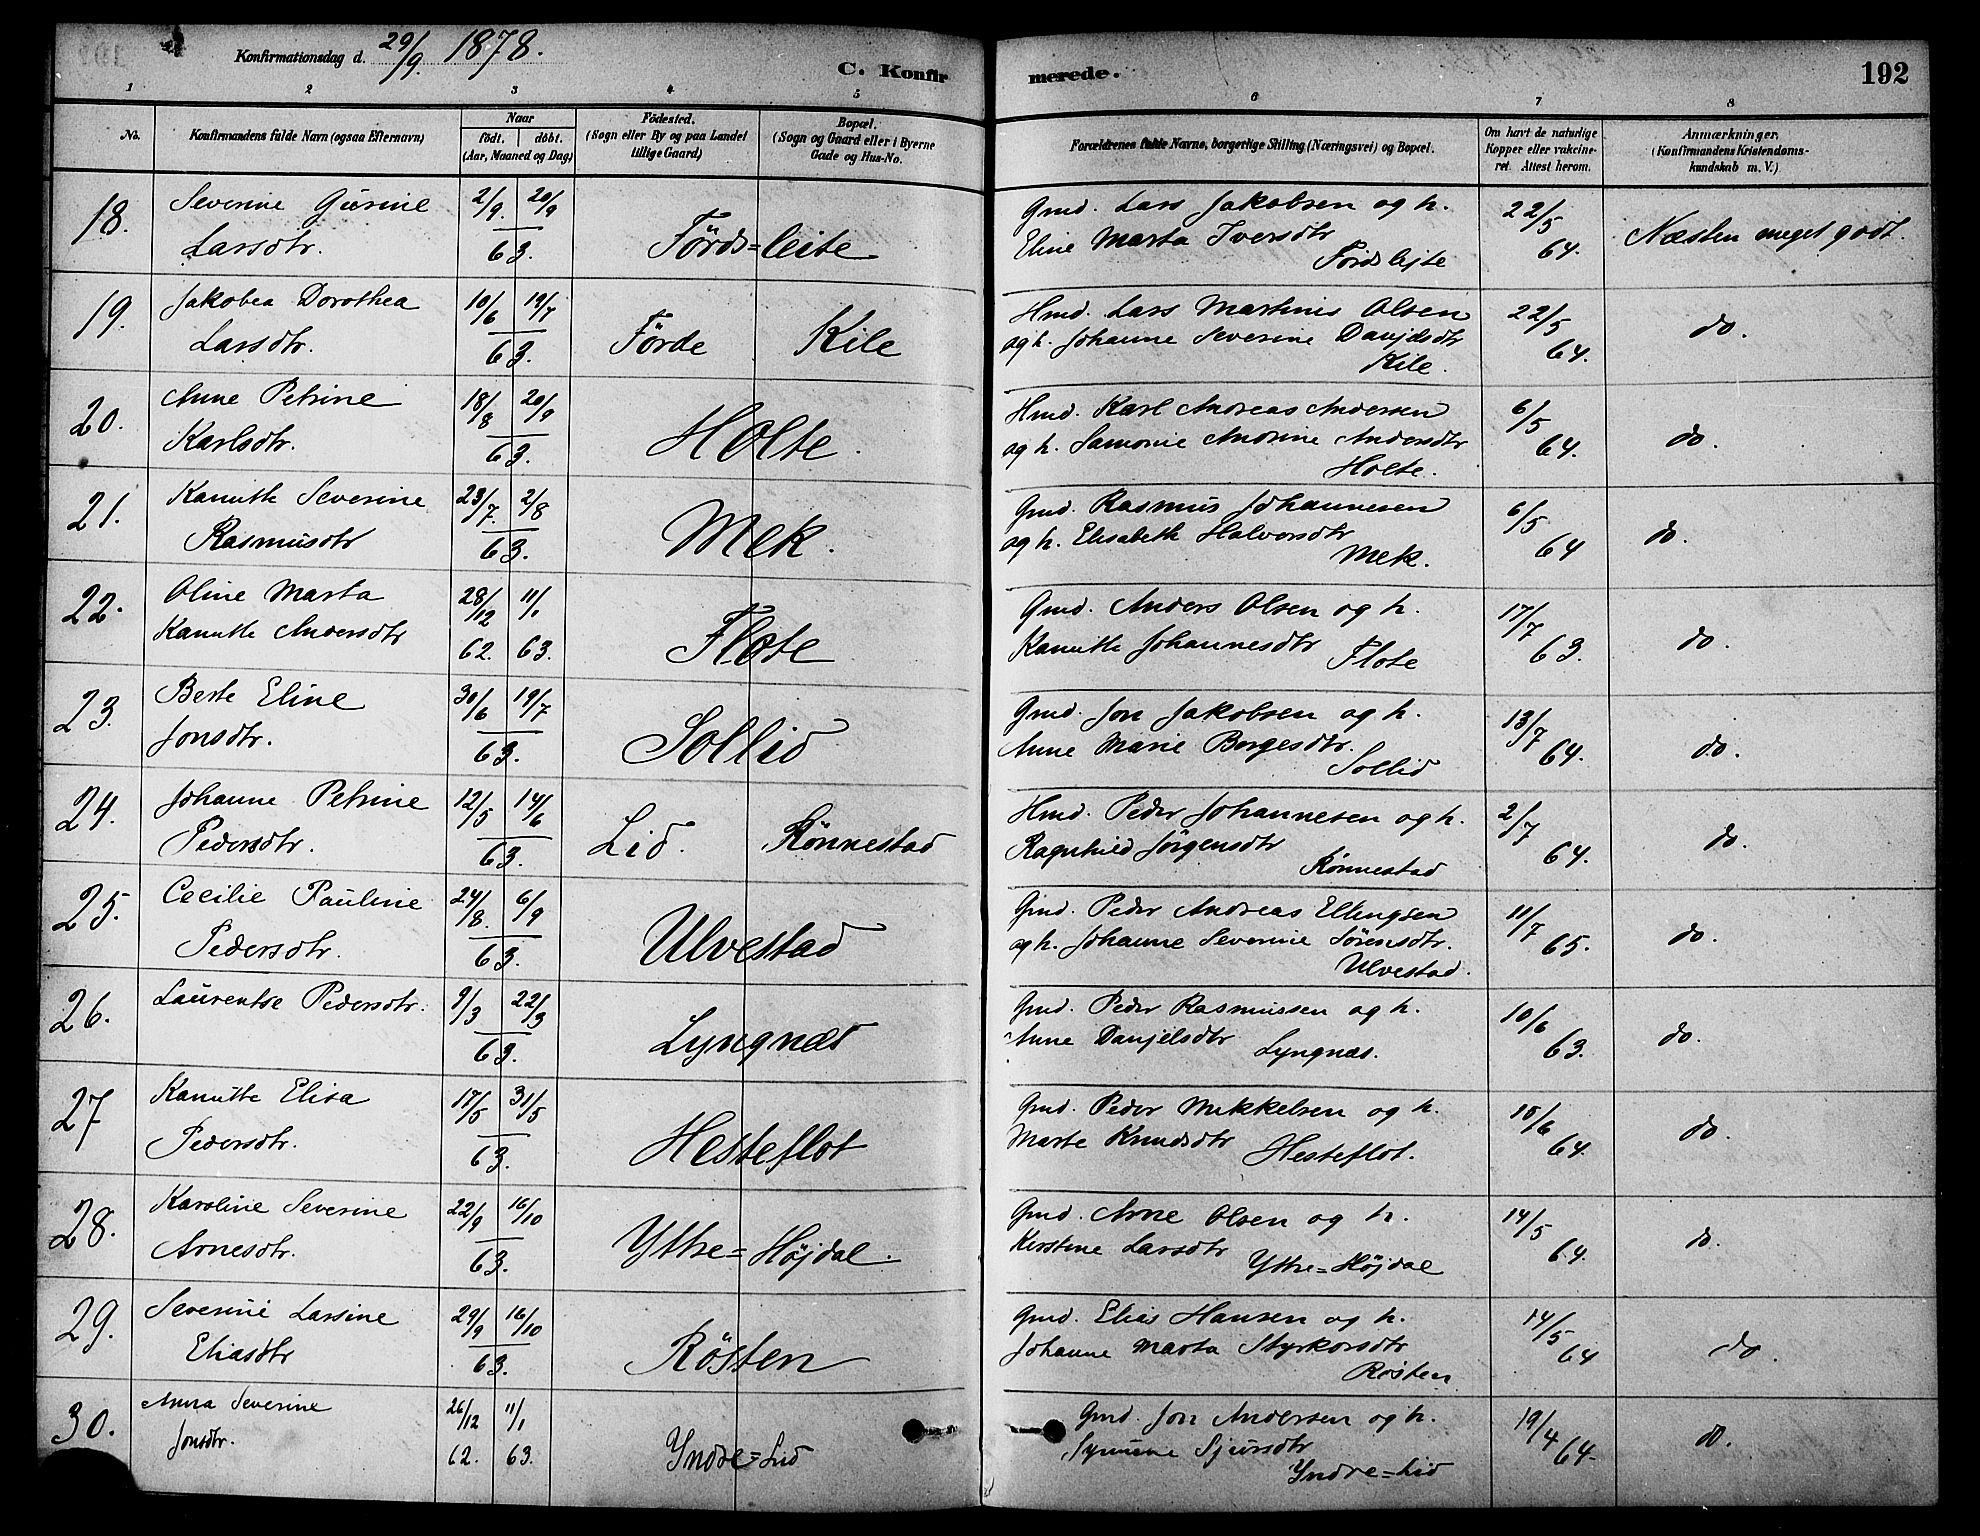 Konfirmationsdag d. 29/9. 1878.
C. Konfir
merede.
192
1 2 3 4 5 6 7 8
No.
Konfirmandens fulde Navn (ogsaa Efternavn)
Naar
født. døbt.
(Aar, Maaned og Dag)
Fødested.
(Sogn eller By og paa Landet
tillige Gaard)
Bopæl.
(Sogn og Gaard eller i Byerne
Gade og Hus-No.
Forældrenes fulde Navne, borgerlige Stilling (Næringsvei) og Bopæl.
Om havt de naturlige
Kopper eller vakcine-
ret. Attest herom.
Anmærkninger.
(Konfirmandens Kristendoms-
kundskab m. V.)
18. Severine Gurine 2/9. 20/9 Gmd. Lars Jakobsen og h. 22/5
Larsdtr. 63. Förds=leite Eline Marta Iversdtr 64. Næsten meget godt.
Fördslejte
19. Jakobea Dorothea 10/6 19/7 Hmd. Lars Martinus Olsen 22/5
Larsdtr. 63. Förde Kile og h. Johanne Severine Danjelsdtr 64. do.
Kile.
20. Anne Petrine 18/8 20/9 Hmd. Karl Andreas Andersen 6/5
Karlsdtr. 63. Holte. og h. Samonie Andrine Andersdtr 64. do.
Holte.
21. Kanutte Severine 23/7. 2/8 Gmd. Rasmus Johannesen 6/5
Rasmusdtr 63. Mek. og h. Elisabeth Halvorsdtr 64 do.
Mek.
22. Oline Marta 28/12 11/1 Gmd. Anders Olsen og h. 17/7
Kanutte Andersdtr 62. 63. Flote Kanutte Johannesdtr 63. do.
Flote
23. Berte Eline 30/6 19/7 Gmd. Jon Jakobsen og h. 13/7
Jonsdtr. 63. Sollid Anne Marie Borgesdtr. 64. do.
Sollid
24. Johanne Petrine 12/5 14/6 Hmd. Peder Johannesen og h. 2/7
Pedersdtr. 63. Lid. Rönnestad Ragnhild Jörgensdtr 64. do.
Rönnestad
25. Cecilie Pauline 24/8. 6/9 Gmd. Peder Andreas Ellingsen 11/7
Pedersdtr. 63. Ulvestad og h. Johanne Severine Sörensdtr. 65. do.
Ulvestad.
26. Laurentse Pedersdtr. 9/3 22/3 Gmd. Peder Rasmussen og h. 10/6
63. Lyngnæs Anne Danjelsdtr Lyngnæs. 63. do.
27 Kanutte Elisa 17/5 31/5 Gmd. Peder Mikkelsen og h. 15/6
Pedersdtr. 63. Hesteflot Marte Knudsdtr Hesteflot. 64. do.
28. Karoline Severine 22/9 16/10 Gmd. Arne Olsen og h. 14/5
Arnesdtr. 63. Ytre=Höjdal. Kirstine Larsdtr 64. do.
Ytre=Höjdal
29. Severine Larsine 29/9 16/10 Gmd. Elias Hansen og h. 14/5
Eliasdtr 63. Rösten Johanne Marta Styrkorsdtr 64 do.
Rösten
30. Anna Severine 26/12 11/1 Gmd. Jon Andersen og h. 19/4
Jonsdtr. 62. 63. Yndre=Lid Synneve Sjursdtr 64. do.
Yndre=Lid